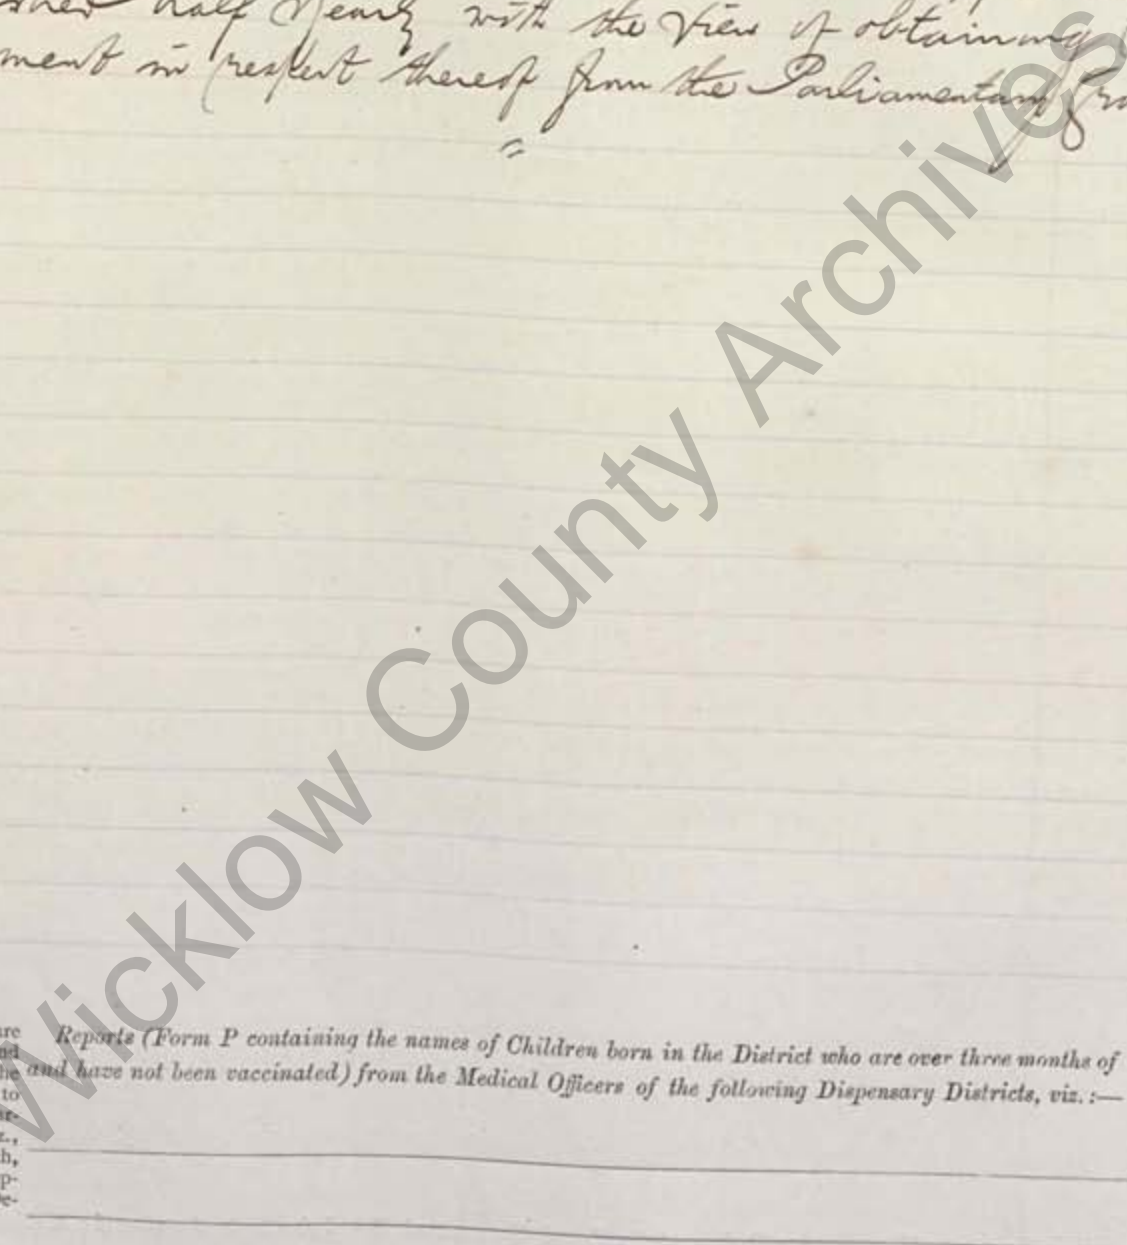 half Yearly with the View of obtaining
ment in respect thereof from the Parliamentary
Wicklow County Archives
Reports (Form P containing the names of Children born in the District who are over three months of
and have not been vaccinated) from the Medical Officers of the following Dispensary Districts, viz.:—
to